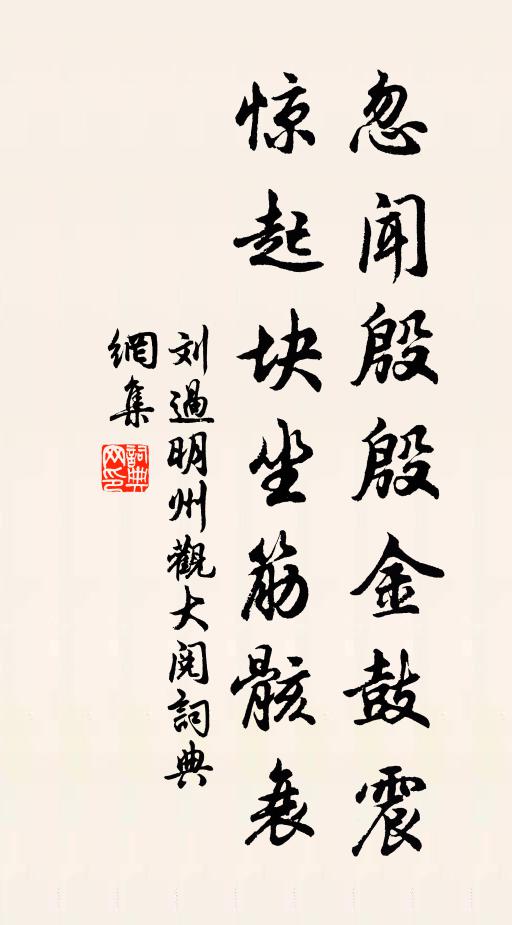 忽闻殷殷金鼓震
惊起块坐筋骸衰
刘過明州觀大阅詞典
網集
詞典
网印